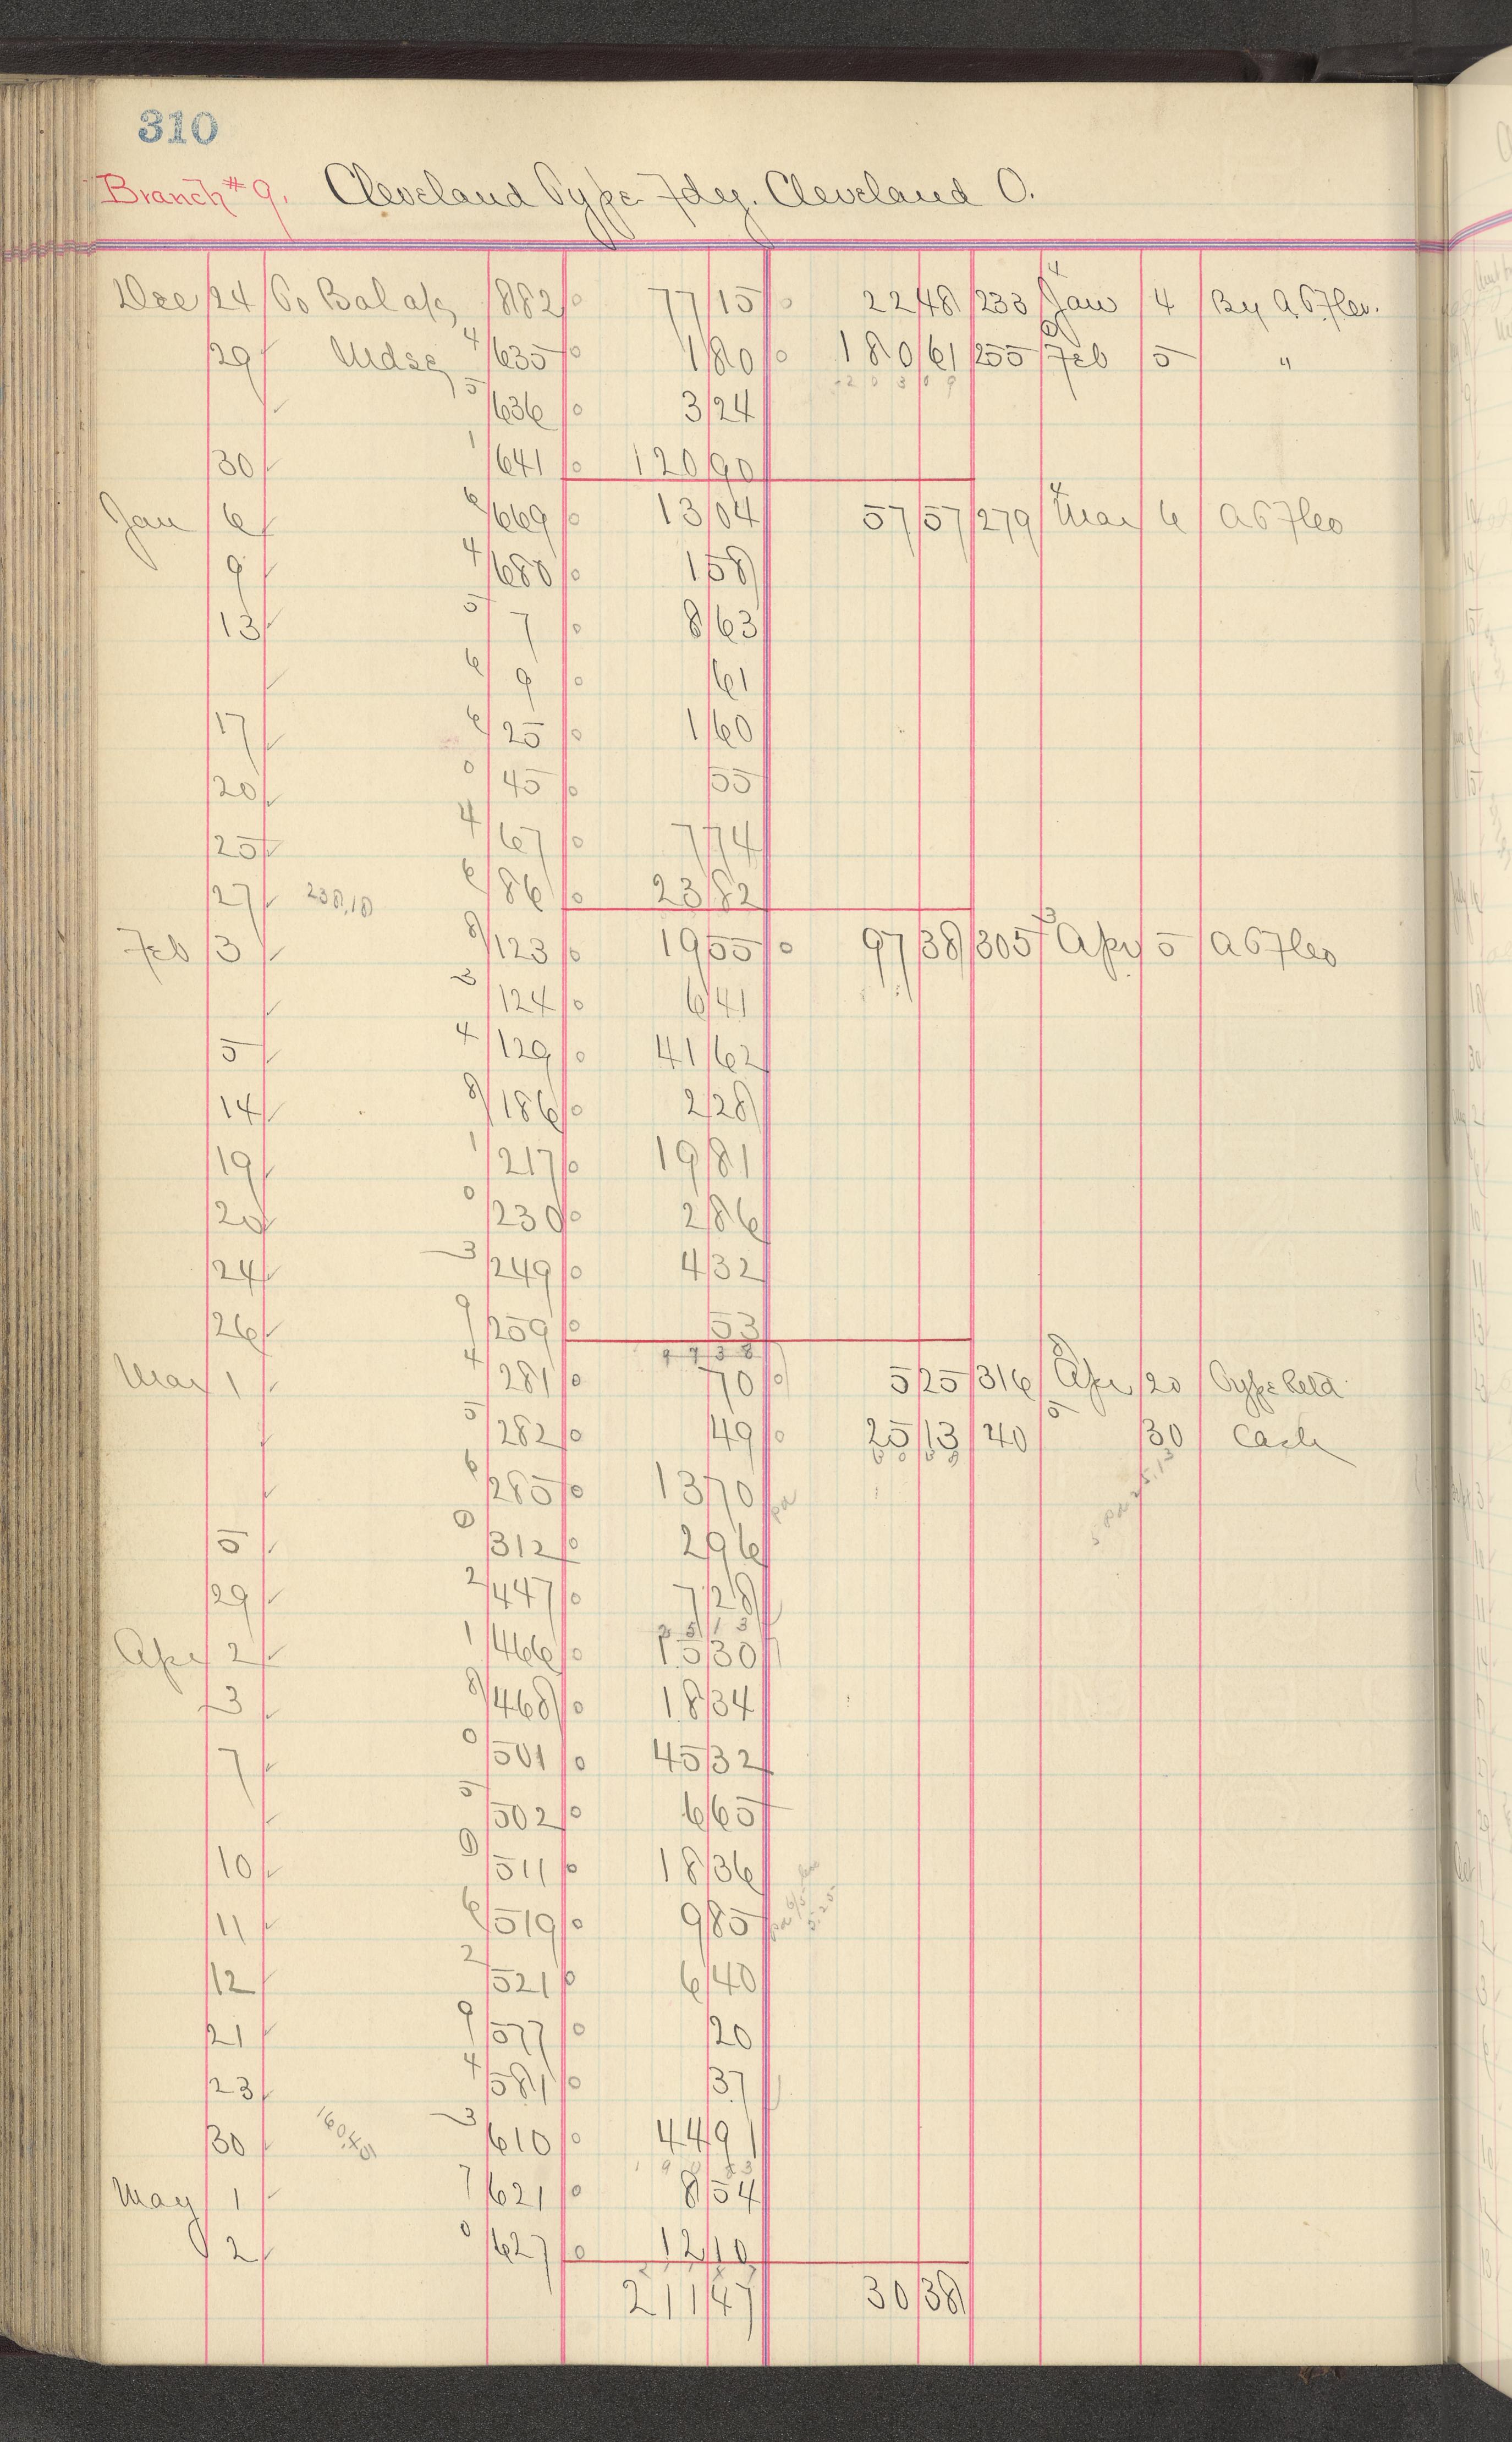 310
Branch #9. Cleveland Type Fdry. Cleveland O.
Dec 24 To Bal a/c 882 77 15 22 48 233 4 Jan 4 By
29 Mdse 4 635 1 80 180 61 255 Feb 5 "
203 09
5 636 3 24
30 1 641 120 90
Jan 6 6 669 13 04 57 57 279 4 Mar 6
9 4 680 1 58
13 5 7 8 63
6 9 61
17 6 25 1 60
20 0 45 55
25 4 67 7 74
27 238.18 6 86 23 82
Feb 3 8 123 19 55 97 38 305 3 Apr 5
3 124 6 41
5 4 129 41 62
14 8 186 2 28
19 1 217 19 81
20 0 230 2 86
24 3 249 4 32
26 9 259 53
97 38
Mar 1 4 281 70 5 25 316 8 Apr 20 Type Retd
5 282 49 25 13 40 5 30 Cash
6 285 13 70 pd
5 0 312 2 96
29 2 447 7 28
25 13
Apr 2 1 466 15 30
3 8 468 18 34
7 0 501 45 32
5 502 6 65
10 0 511 18 36
11 6 519 9 85
12 2 521 6 40
21 9 577 20
23 4 581 37
30 160.45 3 610 44 91
May 1 7 621 8 54
2 0 627 12 10
211 47 30 38